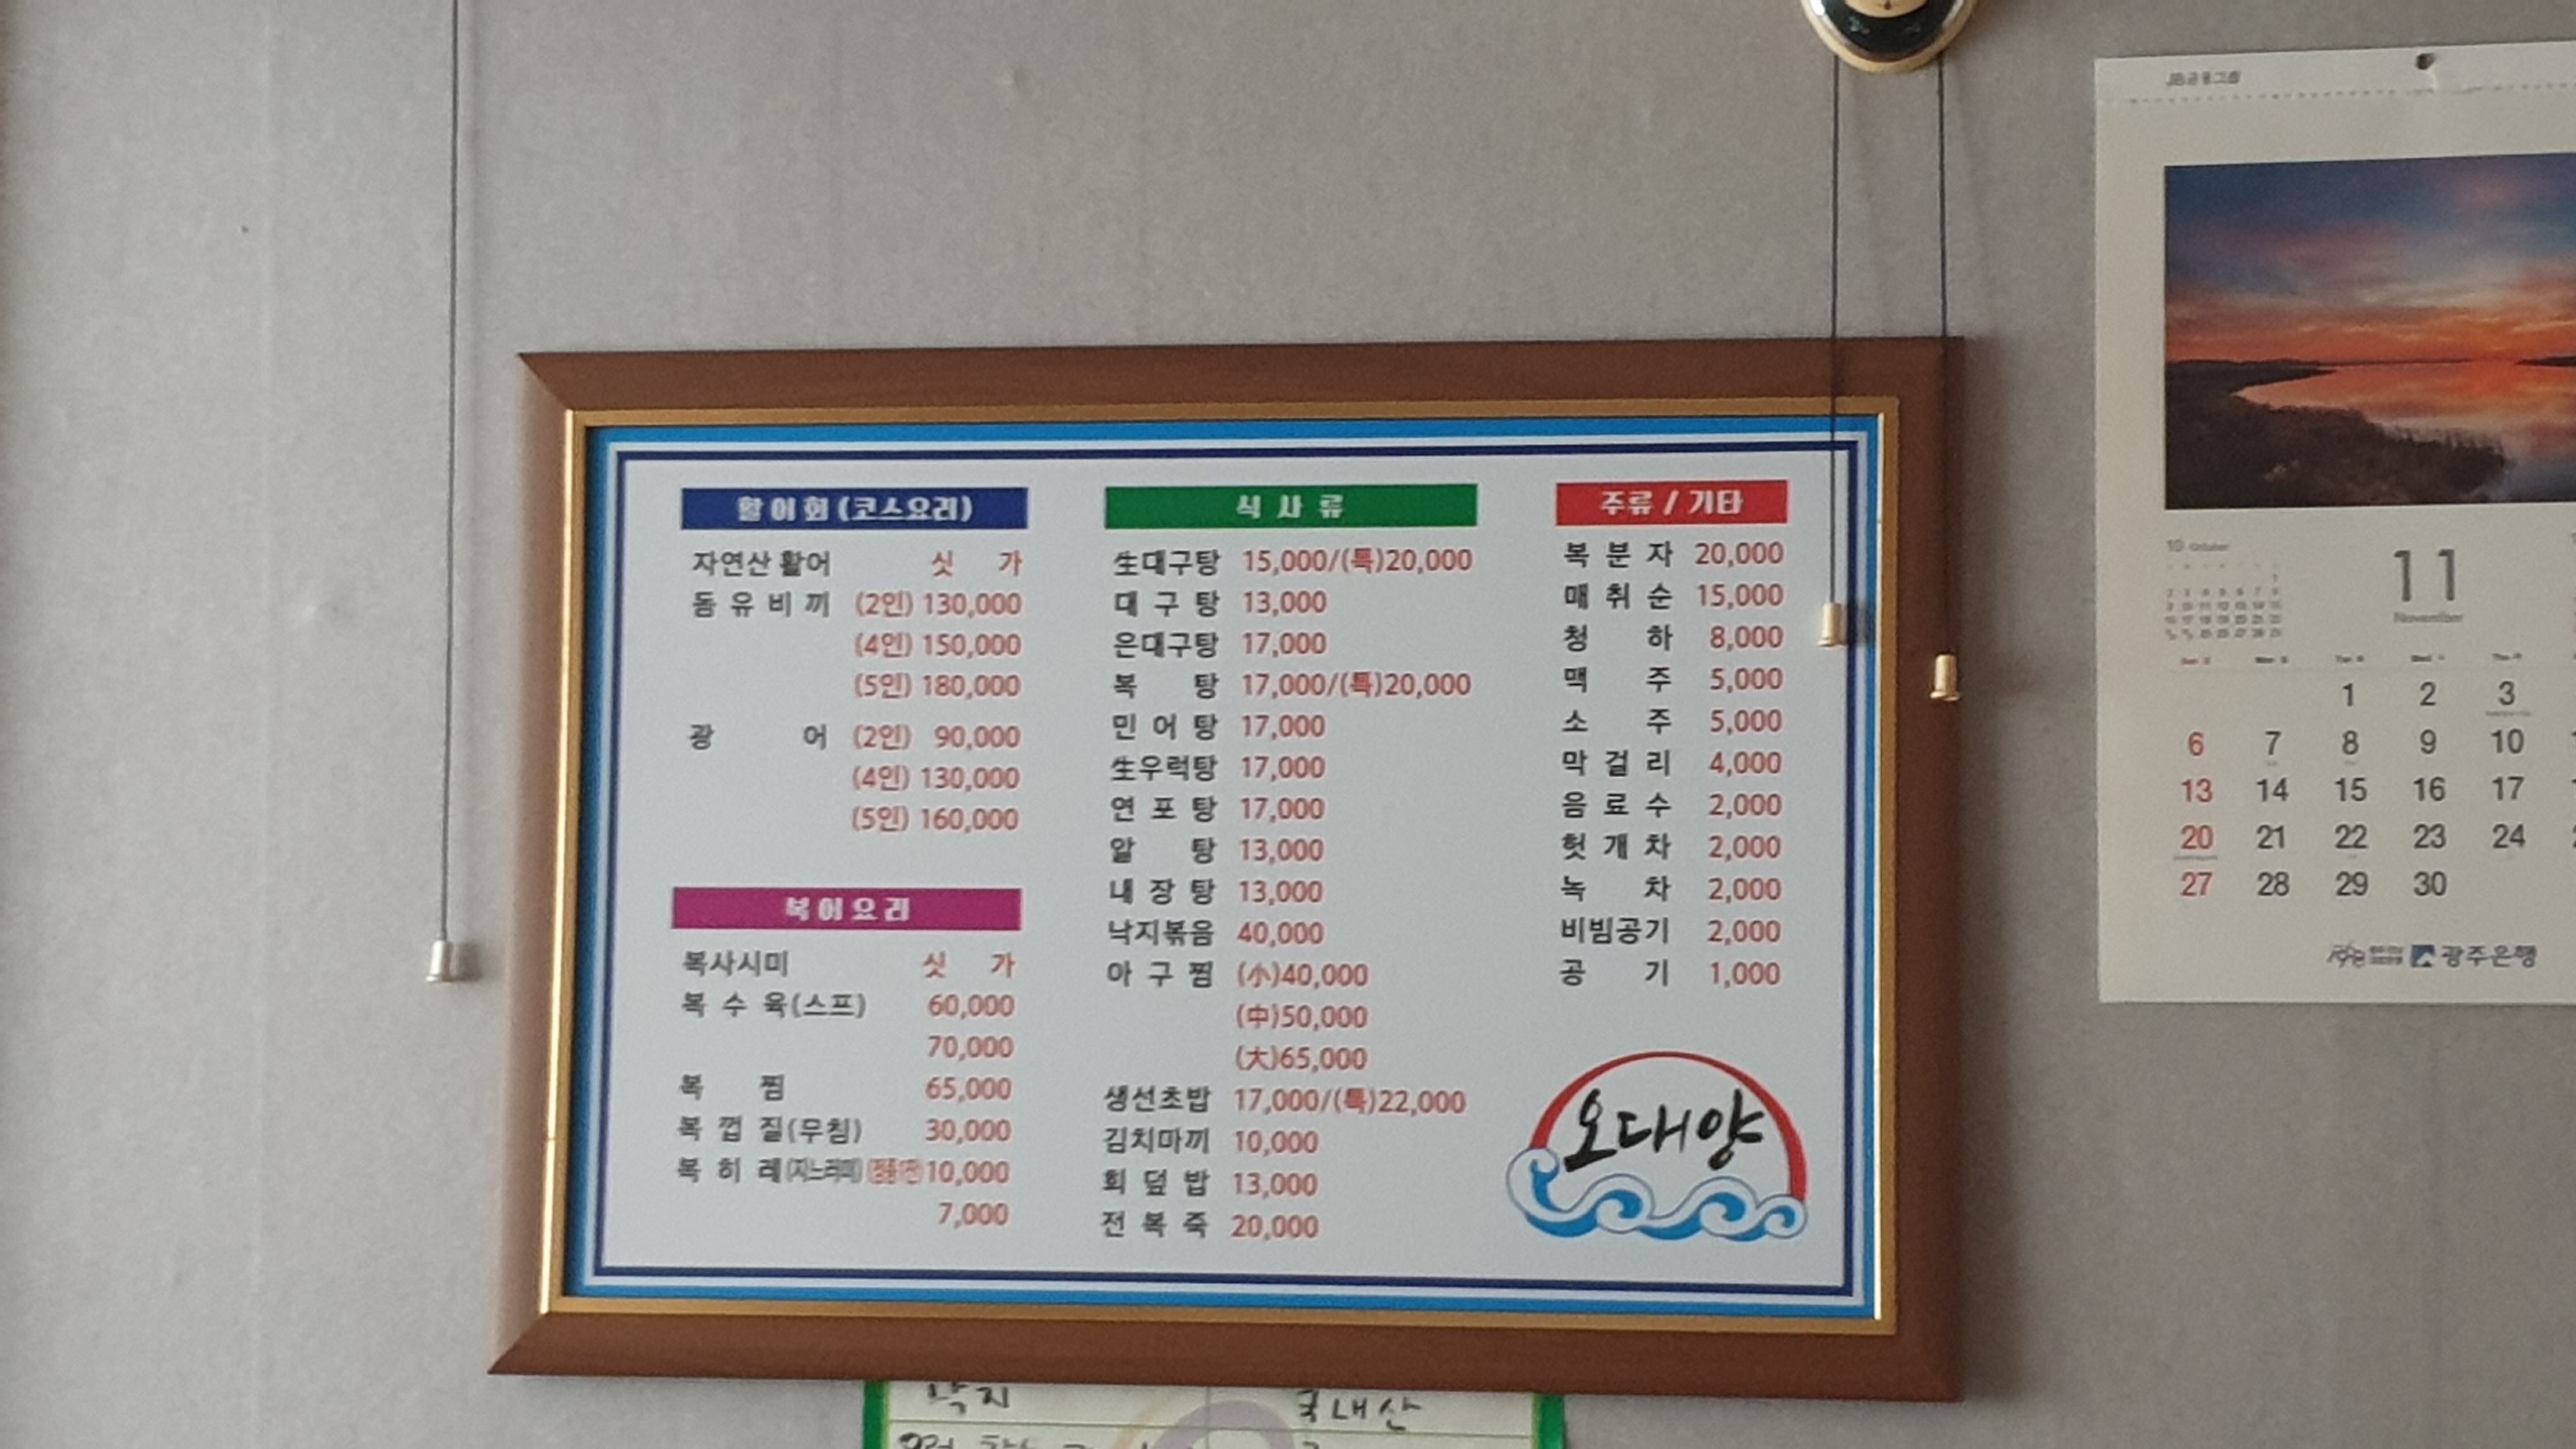 활어회(코스요리)
자연산 활어 싯 가
돔 유 비 끼 (2인) 130,000
(4인) 150,000
(5인) 180,000
광 어 (2인) 90,000
(4인) 130,000
(5인) 160,000
복어요리
복사시미 싯 가
복 수 육(스프) 60,000
70,000
복 찜 65,000
복 껍 질(무침) 30,000
복 히 레 10,000
7,000
식 사 류
生대구탕 15,000/(특)20,000
대 구 탕 13,000
은대구탕 17,000
복 탕 17,000/(특)20,000
민 어 탕 17,000
生우럭탕 17,000
연 포 탕 17,000
알 탕 13,000
내 장 탕 13,000
낙지볶음 40,000
아 구 찜 (小)40,000
(中)50,000
(大)65,000
생선초밥 17,000/(특)22,000
김치마끼 10,000
회 덮 밥 13,000
전 복 죽 20,000
주류 / 기타
복 분 자 20,000
매 취 순 15,000
청 하 8,000
맥 주 5,000
소 주 5,000
막 걸 리 4,000
음 료 수 2,000
헛 개 차 2,000
녹 차 2,000
비빔공기 2,000
공 기 1,000
오대양
낙지 국내산
JB금융그룹
10 October
11
November
1 2 3
6 7 8 9 10
13 14 15 16 17
20 21 22 23 24
27 28 29 30
광주은행